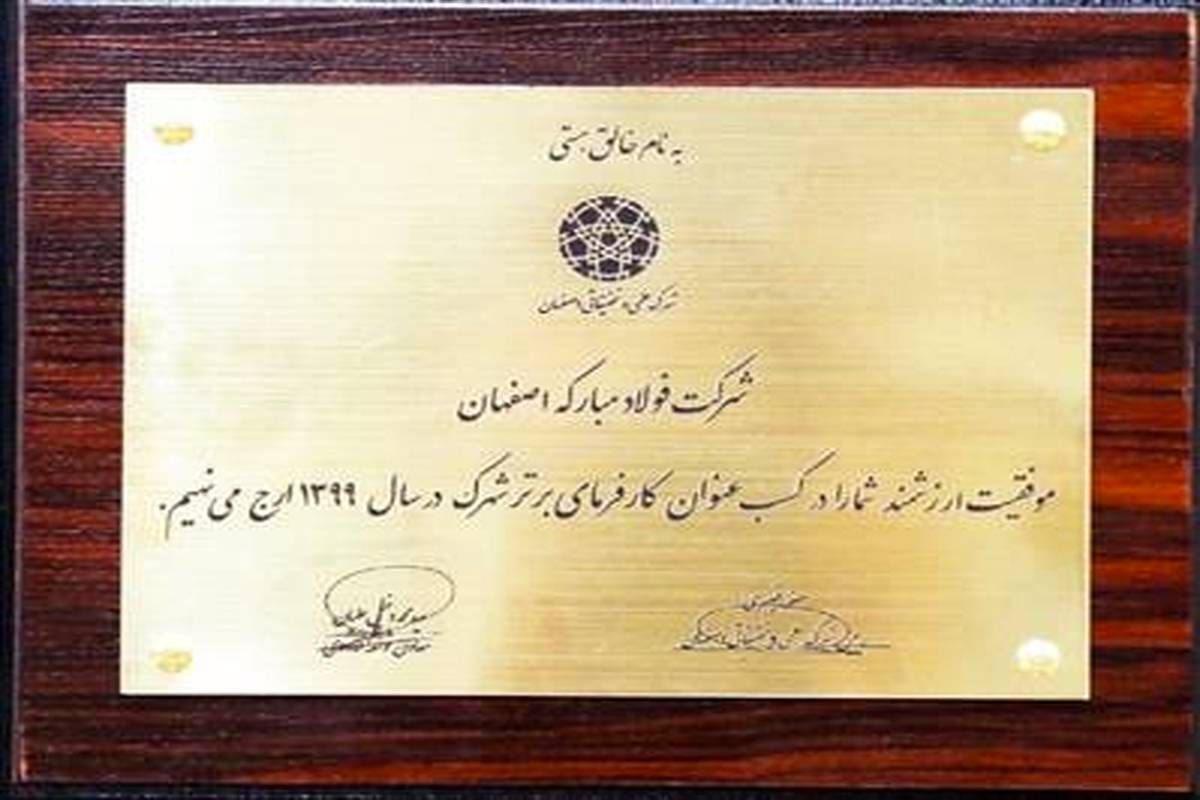 به نام خالق هستی
شهرک علمی و تحقیقاتی اصفهان
شرکت فولاد مبارکه اصفهان
موفقیت ارزشمند شما را در کسب عنوان کارفرمای برتر شهرک در سال ۱۳۹۹ ارج می نهیم.